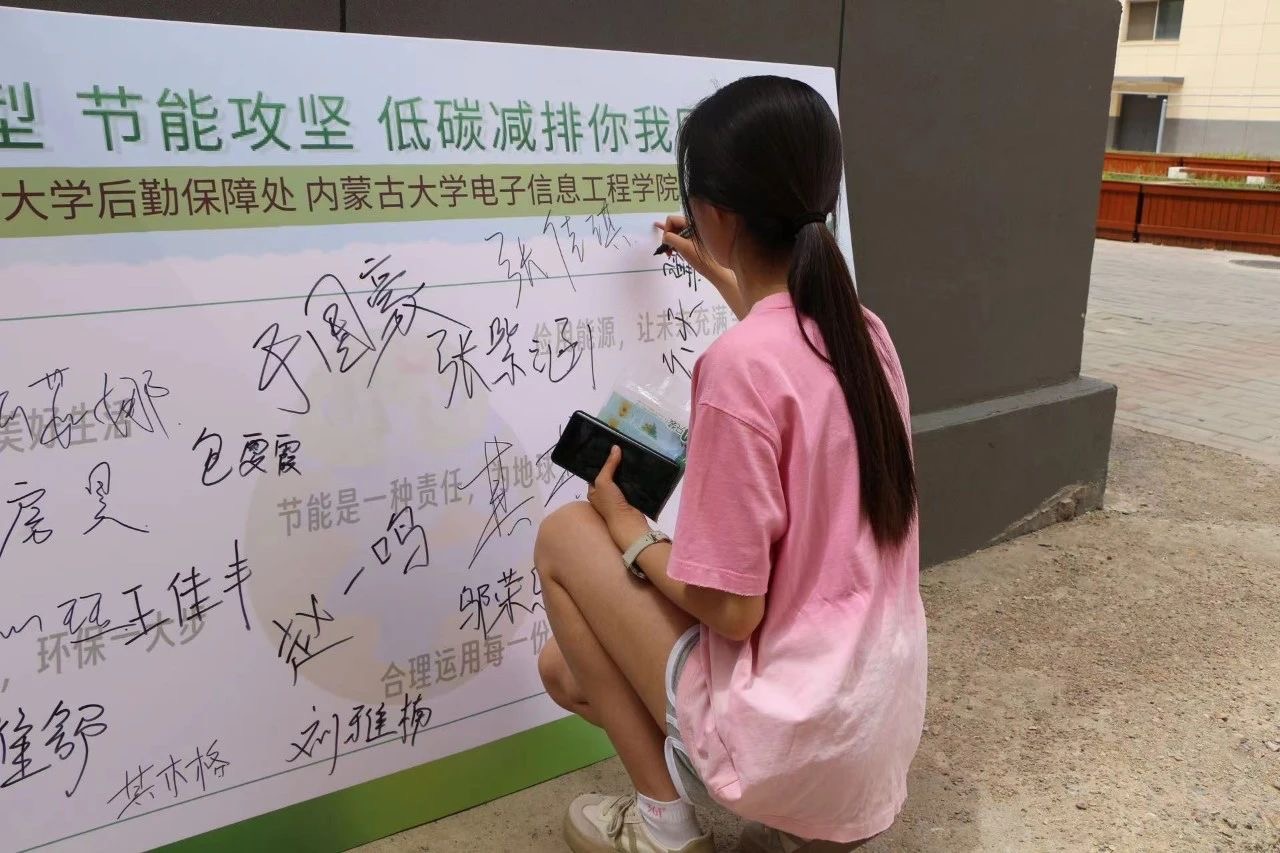 型 节能攻坚 低碳减排你我
大学后勤保障处 内蒙古大学电子信息工程学院
张佳琪
张紫涵
俭用能源，让未来充满
娜
美好生活
包雯霞
节能是一种责任，为地球
房昊
赵一鸣
其
王佳丰
邬荣
环保一大步
合理运用每一份
刘雅楠
舒
其木格
361°